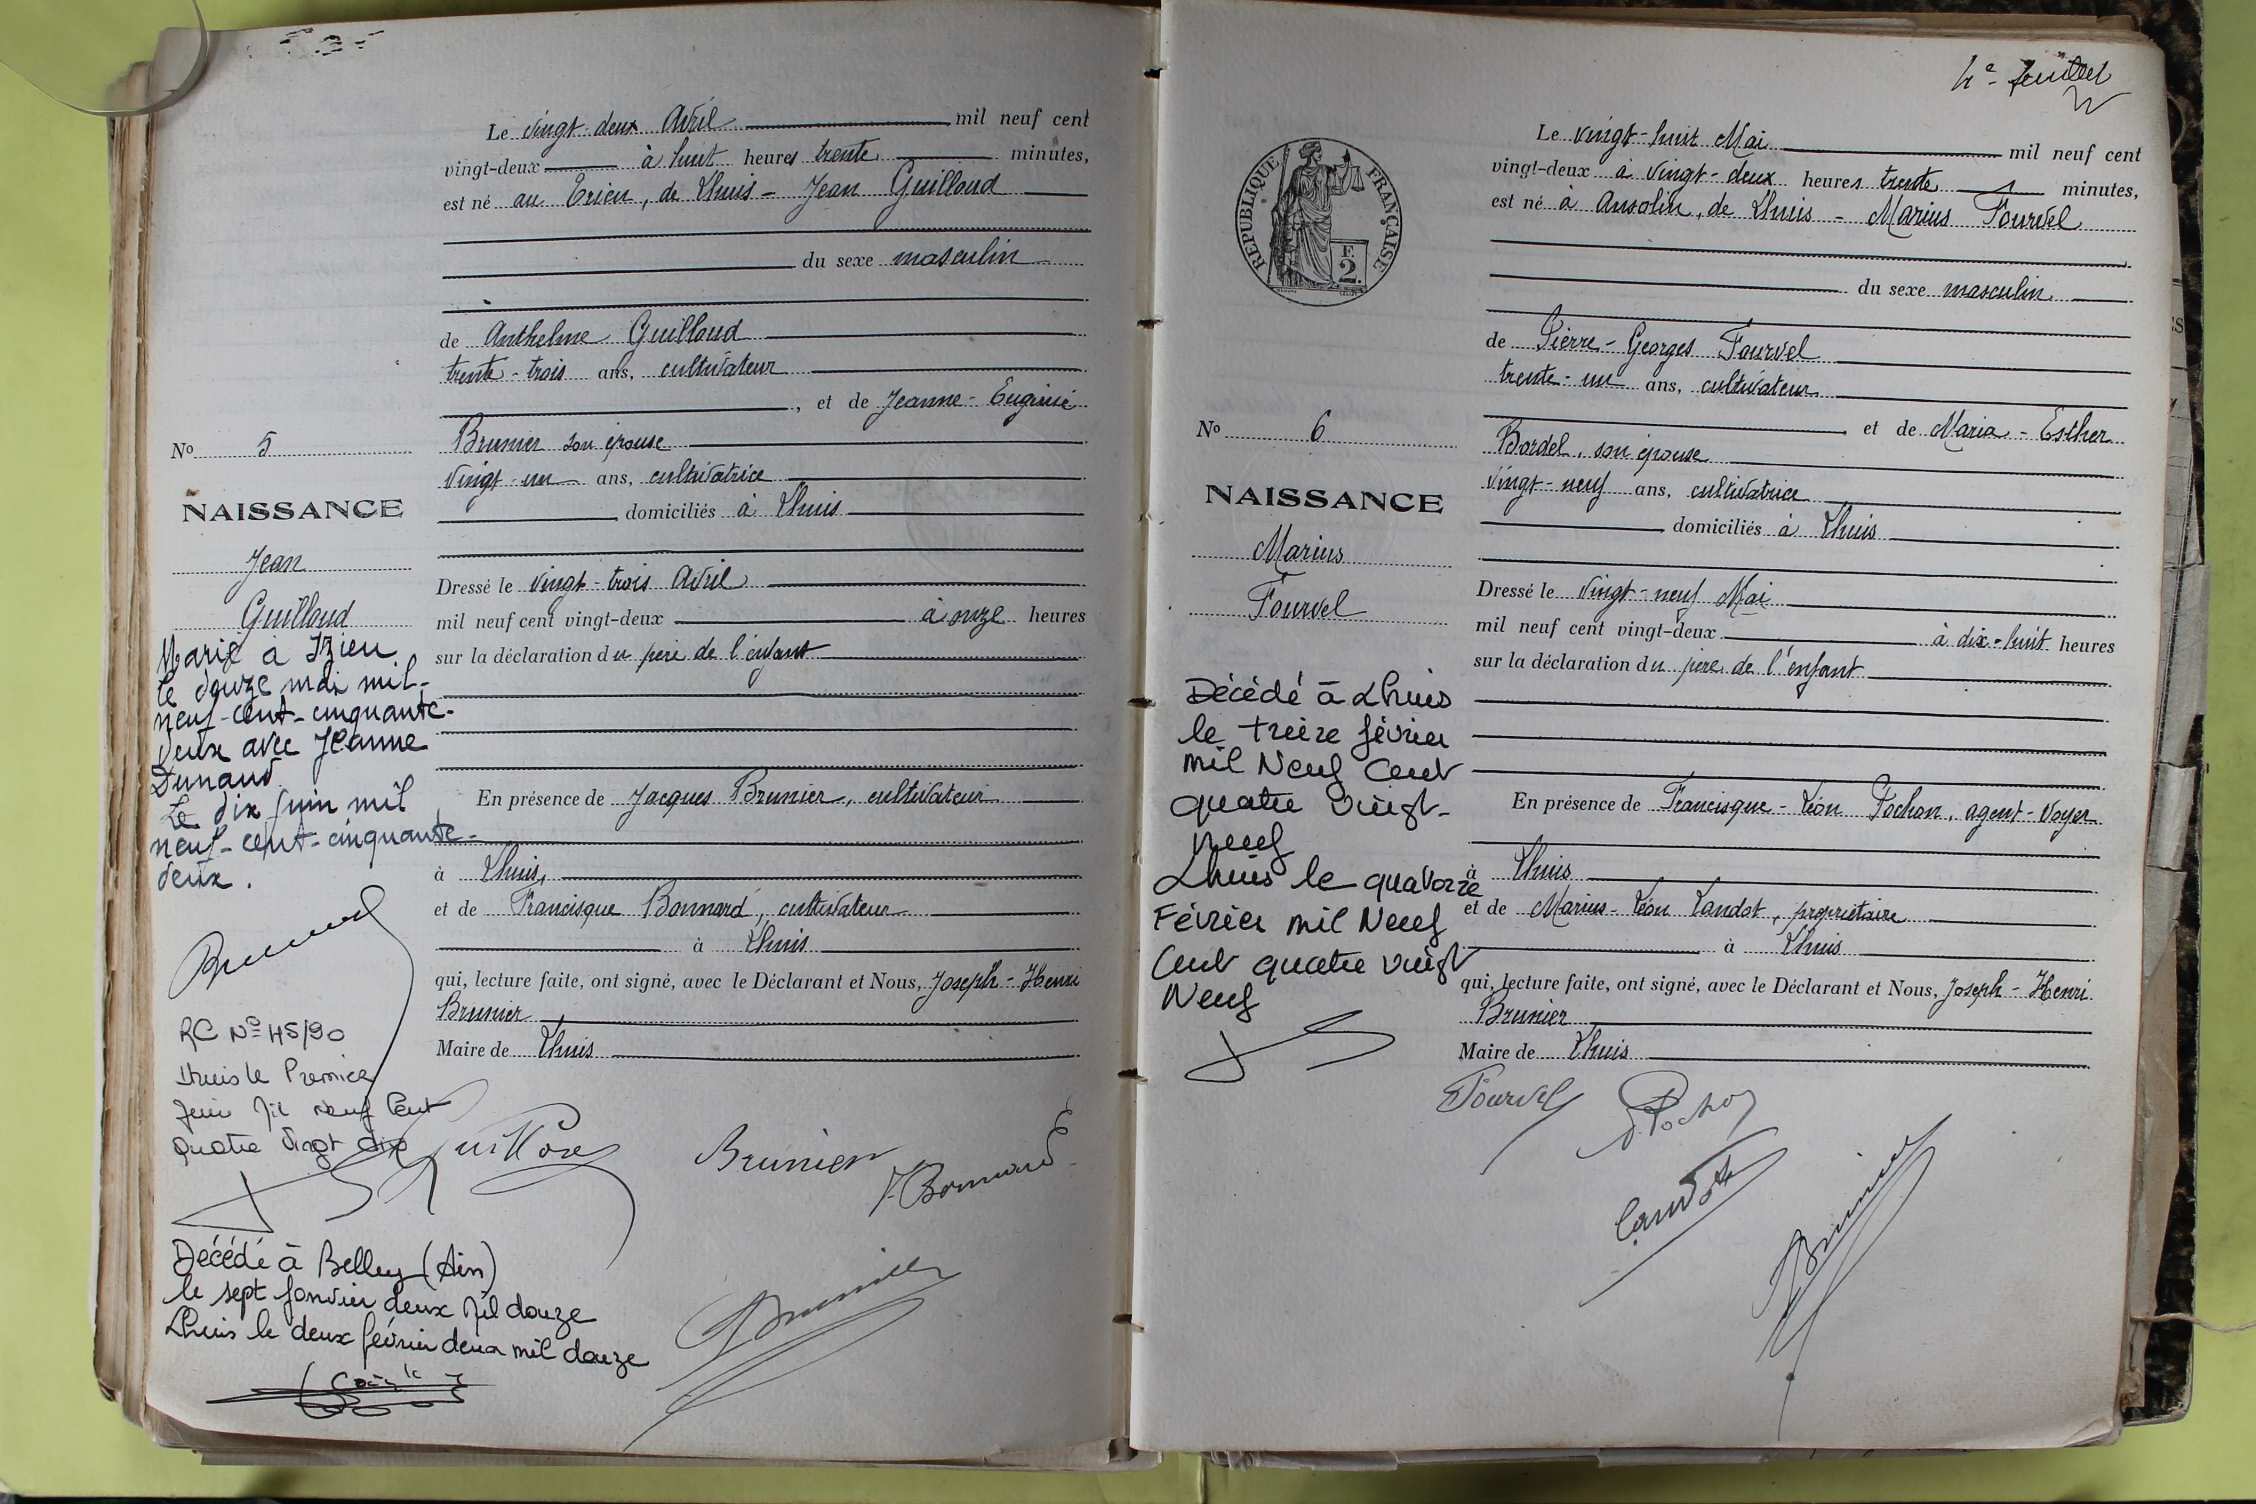 Le vingt-deux Avril mil neuf cent
vingt-deux à huit heures trente minutes,
est né au Crieu, de Lhuis - Jean Guilloud
du sexe masculin
de Anthelme Guilloud
trente-trois ans, cultivateur
, et de Jeanne-Eugénie
Brunier son épouse
vingt-un ans, cultivatrice
domiciliés à Lhuis
Dressé le vingt-trois Avril
mil neuf cent vingt-deux à onze heures
sur la déclaration du père de l'enfant
En présence de Jacques Brunier, cultivateur
à Lhuis,
et de Francisque Bonnard, cultivateur
à Lhuis
qui, lecture faite, ont signé, avec le Déclarant et Nous, Joseph-Henri
Brunier
Maire de Lhuis
No 5
NAISSANCE
Jean
Guilloud
Marié à Izieu
le douze mai mil-
neuf-cent-cinquante-
deux avec Jeanne
Dunand
Le dix juin mil
neuf-cent-cinquante-
deux.
RC No 45/90
Lhuis le Premier
Juin Mil neuf Cent
Quatre Vingt dix
Brunier
F Bonnard
Décédé à Belley (Ain)
le sept janvier deux Mil douze
Lhuis le deux février deux mil douze
4e feuillet
RÉPUBLIQUE FRANÇAISE
F.
2.
Le vingt-huit Mai mil neuf cent
vingt-deux à vingt-deux heures trente minutes,
est né à Ansolin, de Lhuis - Marius Fourvel
du sexe masculin
de Pierre-Georges Fourvel
trente-un ans, cultivateur
et de Maria-Esther
Bordel, son épouse
vingt-neuf ans, cultivatrice
domiciliés à Lhuis
Dressé le vingt-neuf Mai
mil neuf cent vingt-deux à dix-huit heures
sur la déclaration du père de l'enfant
En présence de Francisque-Léon Pochon, agent-voyer
à Lhuis
et de Marius-Léon Landot, propriétaire
à Lhuis
qui, lecture faite, ont signé, avec le Déclarant et Nous, Joseph-Henri
Brunier
Maire de Lhuis
No 6
NAISSANCE
Marius
Fourvel
Décédé à Lhuis
le treize février
mil Neuf Cent
quatre vingt-
neuf
Lhuis le quatorze
Février mil Neuf
Cent quatre vingt
Neuf
Fourvel
Landot
Brunier